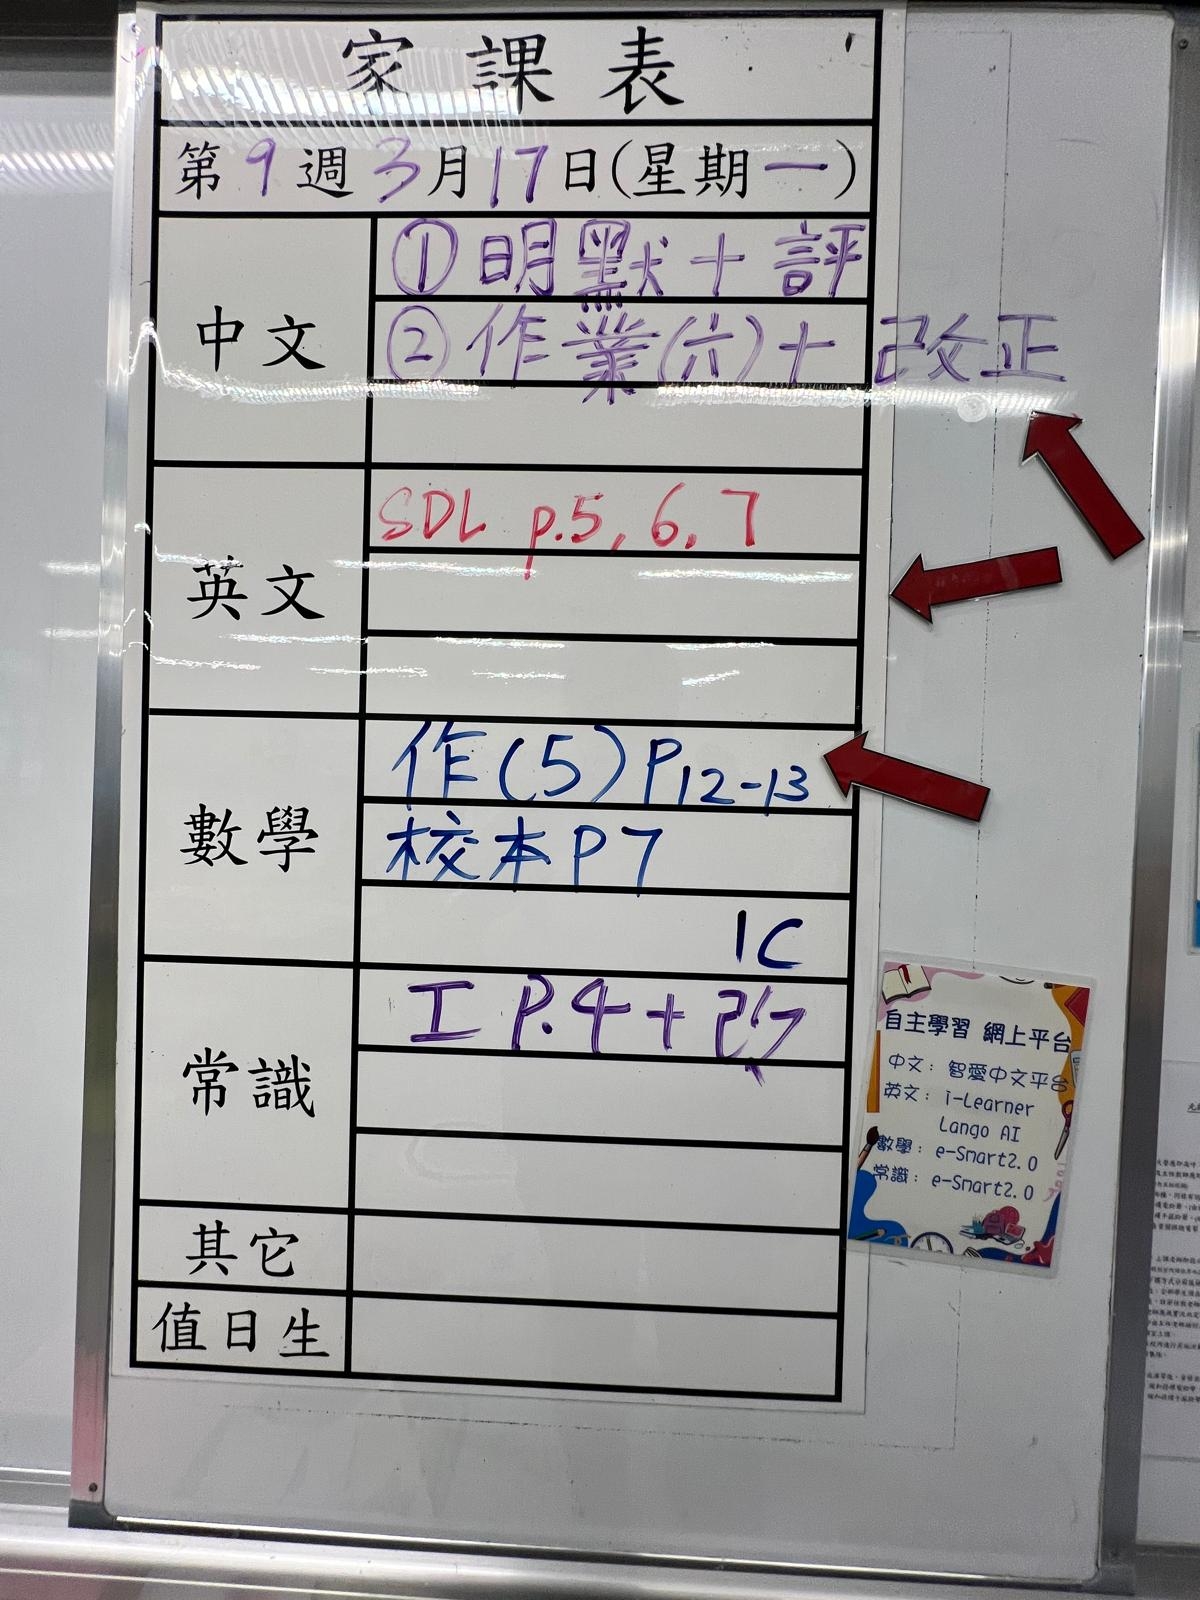 家課表
第9週3月17日(星期一)
中文
①明默+評
②作業(六)+改正
英文
SDL p.5, 6, 7
數學
作(5)P12-13
校本P7
1C
常識
工 P.4+改
其它
值日生
自主學習 網上平台
中文：智愛中文平台
英文：i-Learner
Lango AI
數學：e-Smart2.0
常識：e-Smart2.0